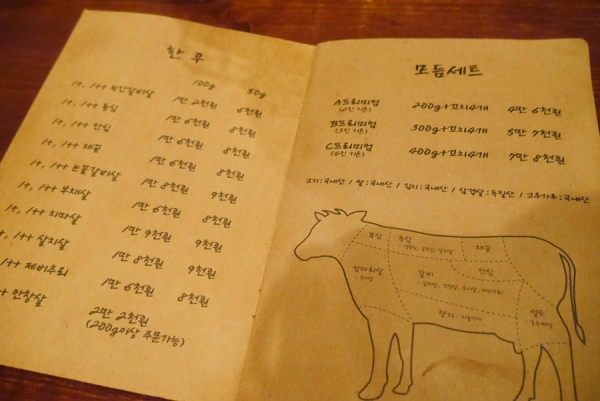 한 우
100g 50g
1+, 1++ 부안갈비살 1만 2천원 6천원
1+, 1++ 등심 1만 6천원 8천원
1+, 1++ 안심 1만 6천원 8천원
1+, 1++ 채끝 1만 6천원 8천원
1+, 1++ 눈꽃갈비살 1만 8천원 9천원
1+, 1++ 부채살 1만 6천원 8천원
1+, 1++ 치마살 1만 9천원 9천원
1++ 살치살 1만 8천원 9천원
1++ 제비추리 1만 6천원 8천원
++ 안창살 2만 2천원
(200g이상 주문가능)
모듬세트
A프리미엄 200g+꼬치4개 4만 6천원
(2인 기준)
B프리미엄 300g+꼬치4개 5만 7천원
(3인 기준)
C프리미엄 400g+꼬치4개 7만 8천원
(4인 기준)
고기:국내산 / 쌀:국내산 / 김치:국내산 / 삼겹살:독일산 / 고추가루:국내산
목심 등심 채끝
안심
갈비
양지
설도